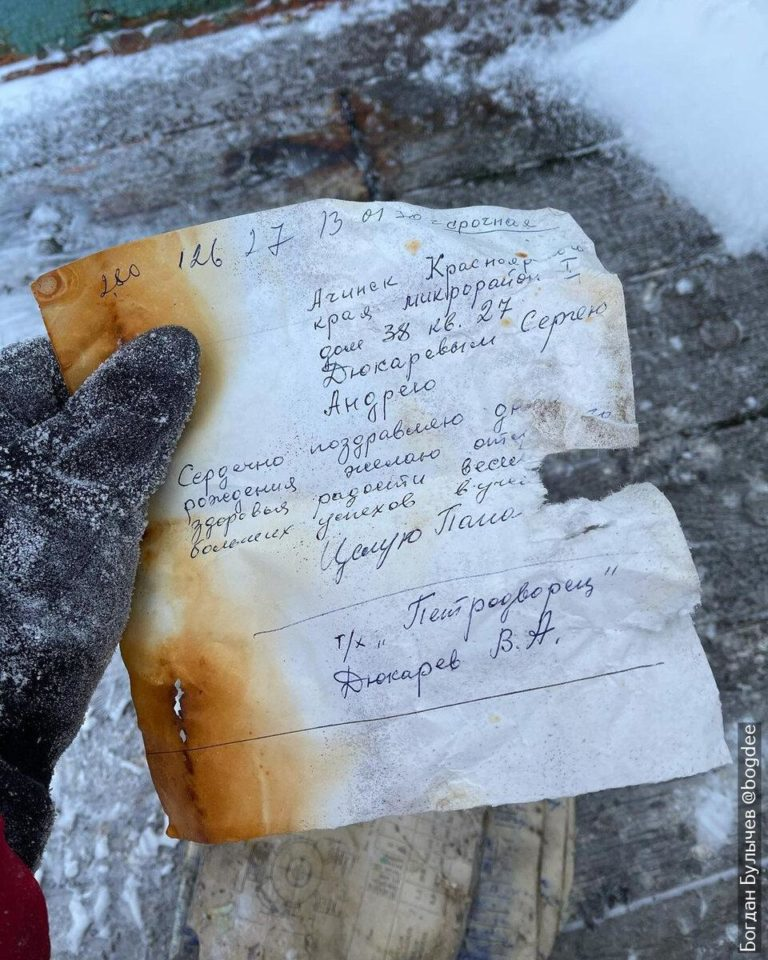 280 126 27 13 01 20 = срочная =
Ачинск
края микрорайон I
дом 38 кв. 27
Дюкаревым Сергею
Андрею
Сердечно поздравляю
рождения желаю
здоровья радости
больших успехов
Целую Папа
т/х „Петродворец"
Дюкарев В.А.
Богдан Булычев @bogdee